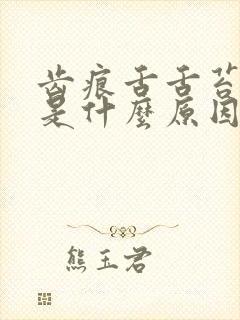 齿痕舌舌苔
是什麼原因
熊玉君